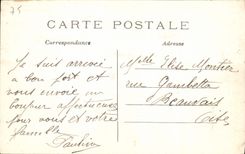 75
CARTE POSTALE
Correspondance
Adresse
Je suis arrivé
a bon port et
vous envoie un
bonjour affectueux
pour vous et votre
famille
Paulin
Melle Elise Montier
rue Gambetta
Beauvais
Oise